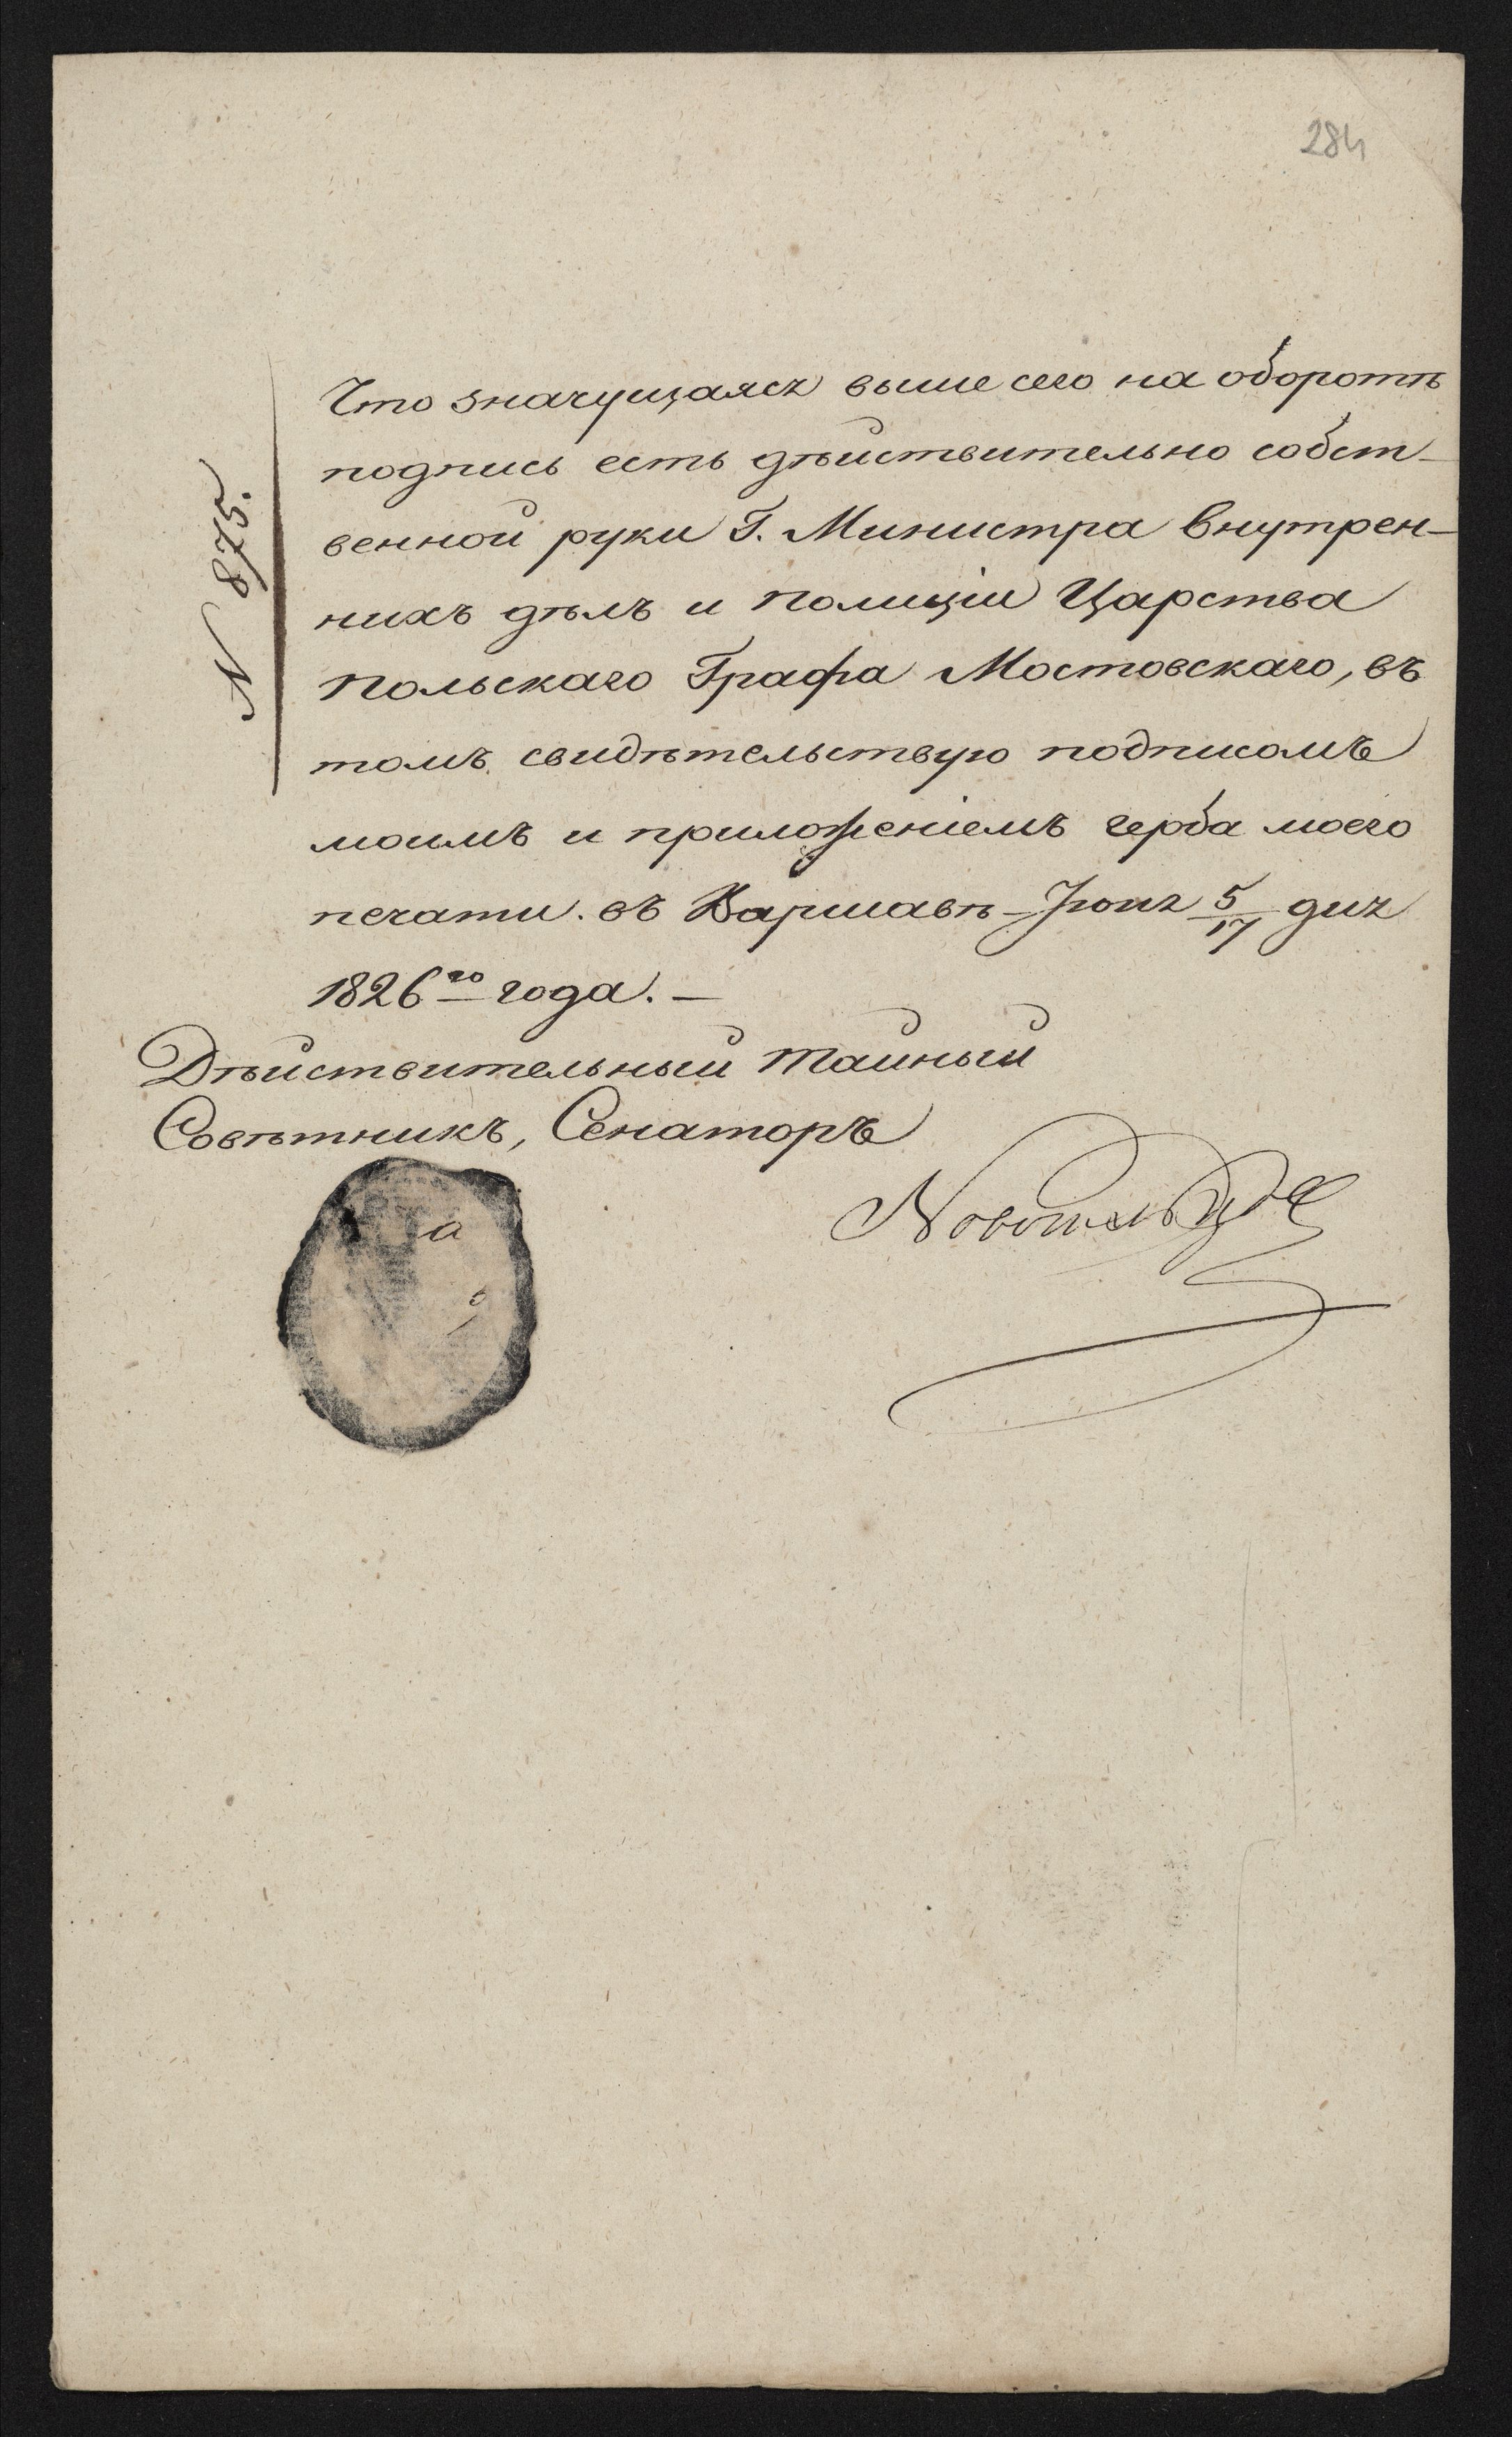 284
N 875.
Что значущаяся выше сего на оборотѣ
подпись есть дѣйствительно собст-
венной руки Г. Министра внутрен-
нихъ дѣлъ и полиціи Царства
Польскаго Графа Мостовскаго, въ
томъ свидѣтельствую подписомъ
моимъ и приложеніемъ герба моего
печати. въ Варшавѣ - Іюня 5/17 дня
1826го года. —
Дѣйствительный тайный
Совѣтникъ, Сенаторъ
Новосильцов